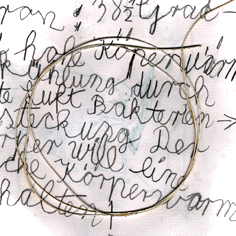 ran : 38½ Grad -
halt Körperwärm
kühlung durch
te Luft Bakterien →
steckung. Der
rper will ein
die Körperwärm
halten!